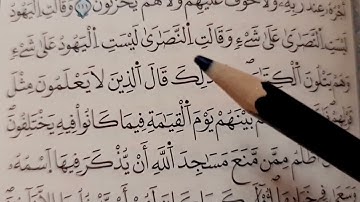 أَجْرُهُۥ عِندَ رَبِّهِۦ وَلَا خَوْفٌ عَلَيْهِمْ وَلَا هُمْ يَحْزَنُونَ ١١٢ وَقَالَتِ الْيَهُودُ
لَيْسَتِ النَّصَٰرَىٰ عَلَىٰ شَىْءٍ وَقَالَتِ النَّصَٰرَىٰ لَيْسَتِ الْيَهُودُ عَلَىٰ شَىْءٍ
وَهُمْ يَتْلُونَ الْكِتَٰبَ كَذَٰلِكَ قَالَ الَّذِينَ لَا يَعْلَمُونَ مِثْلَ
بَيْنَهُمْ يَوْمَ الْقِيَٰمَةِ فِيمَا كَانُوا۟ فِيهِ يَخْتَلِفُونَ
أَظْلَمُ مِمَّن مَّنَعَ مَسَٰجِدَ اللَّهِ أَن يُذْكَرَ فِيهَا اسْمُهُۥ